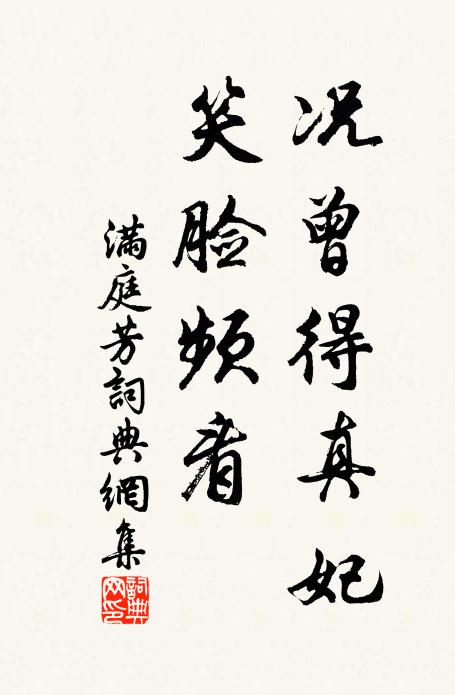 况曾得真妃
笑脸頻看
滿庭芳詞典網集
詞典
网印